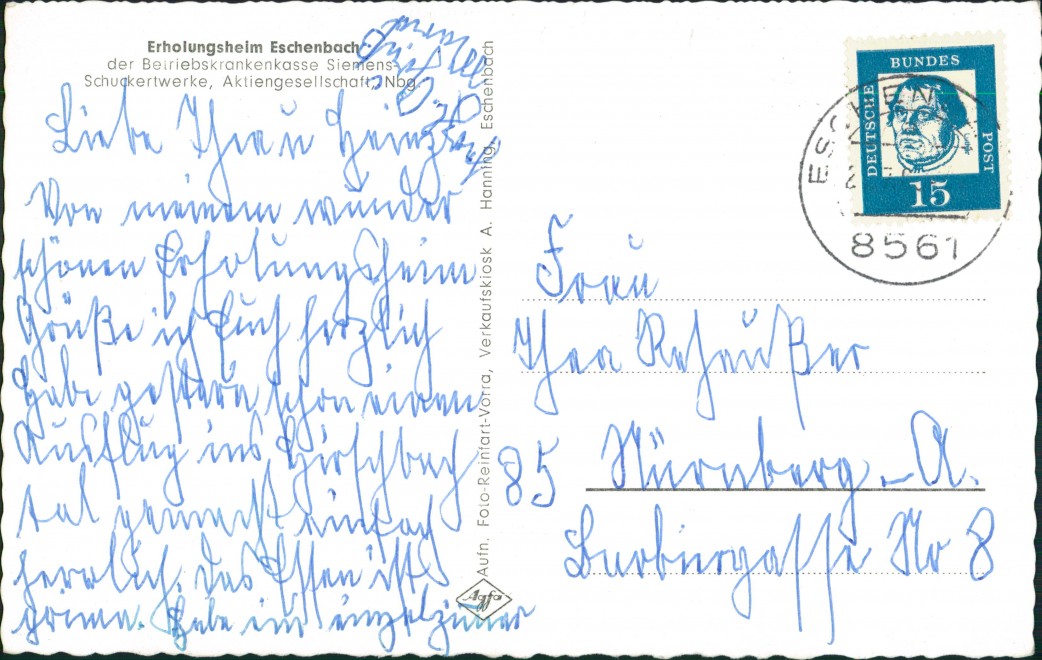 Erholungsheim Eschenbach
der Betriebskrankenkasse Siemens-
Schuckertwerke, Aktiengesellschaft, Nbg.
Liebe Thea u Heinz
Von meinem wunder
schönen Erholungsheim
Grüße ich Euch herzlich
habe gestern schon einen
Ausflug ins Hirschbach
tal gemacht einfach
herrlich. Das Essen ist
prima. Habe ein einzelzimmer
Aufn. Foto-Reinfart-Vorra, Verkaufskiosk A. Hanning, Eschenbach
Agfa
DEUTSCHE
BUNDES
POST
15
ESCHEN
8561
Frau
Thea
85 Nürnberg-A.
Nr 8